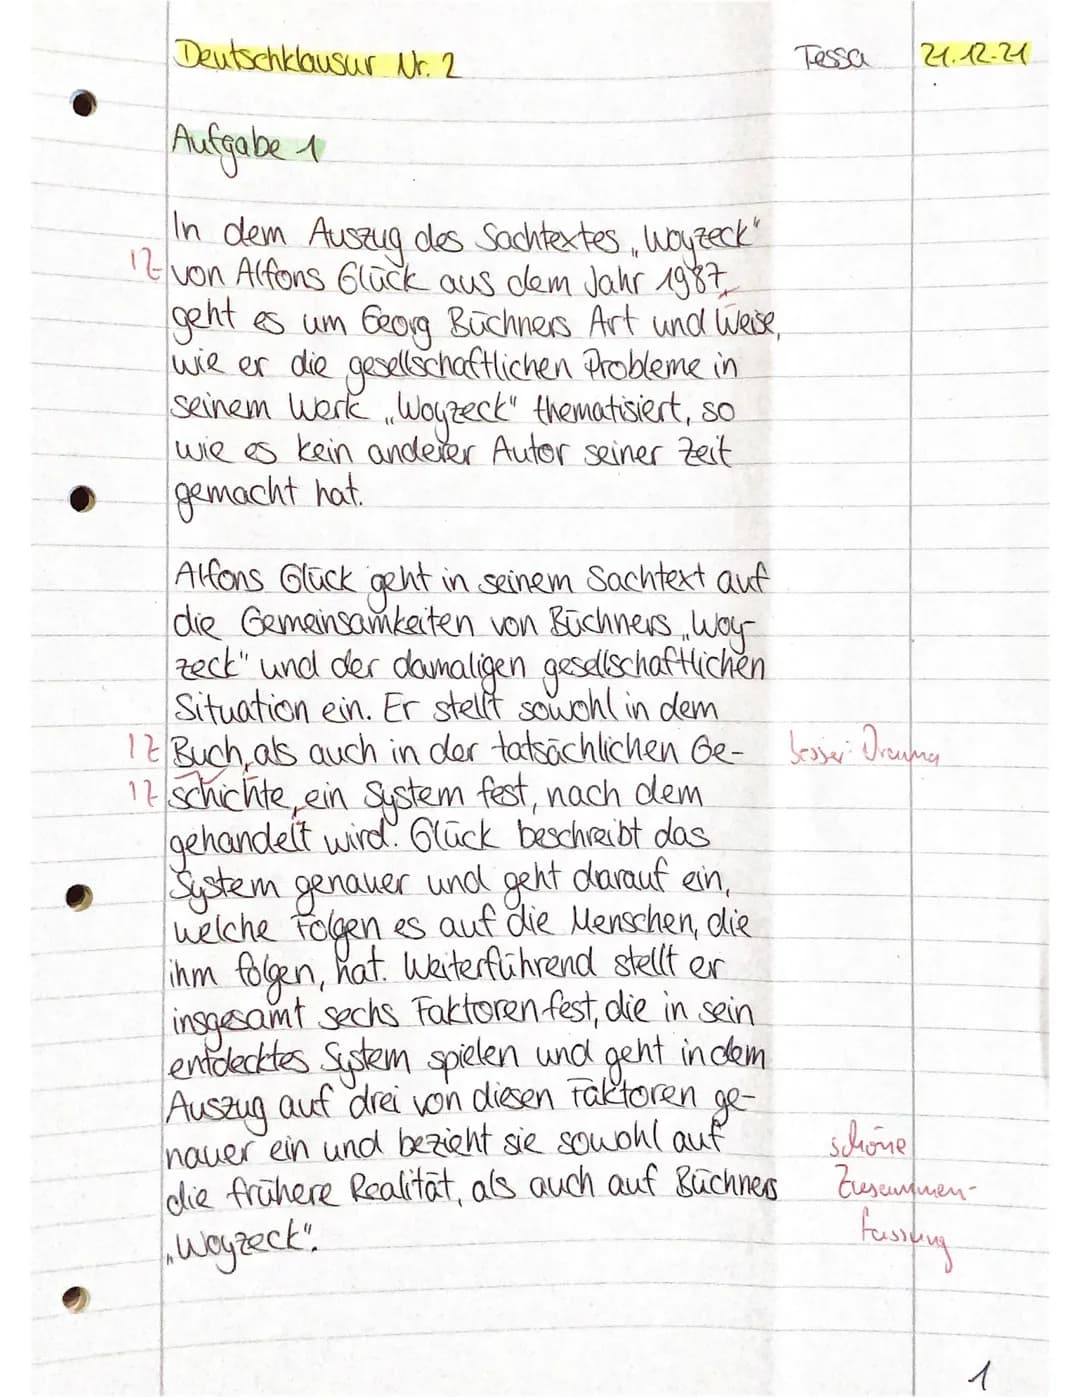 Deutschklausur Nr. 2 Tessa 21.12.21
Aufgabe 1
In dem Auszug des Sachtextes „Woyzeck"
1Z von Alfons Glück aus dem Jahr 1987,
geht es um Georg Büchners Art und Weise,
wie er die gesellschaftlichen Probleme in
seinem Werk „Woyzeck" thematisiert, so
wie es kein anderer Autor seiner Zeit
gemacht hat.
Alfons Glück geht in seinem Sachtext auf
die Gemeinsamkeiten von Büchners „Woy-
zeck" und der damaligen gesellschaftlichen
Situation ein. Er stellt sowohl in dem
1Z Buch, als auch in der tatsächlichen Ge- besser: Drama
1Z schichte, ein System fest, nach dem
gehandelt wird. Glück beschreibt das
System genauer und geht darauf ein,
welche Folgen es auf die Menschen, die
ihm folgen, hat. Weiterführend stellt er
insgesamt sechs Faktoren fest, die in sein
entdecktes System spielen und geht in dem
Auszug auf drei von diesen Faktoren ge-
nauer ein und bezieht sie sowohl auf schöne
die frühere Realität, als auch auf Büchners Zusammen-
„Woyzeck". fassung
1